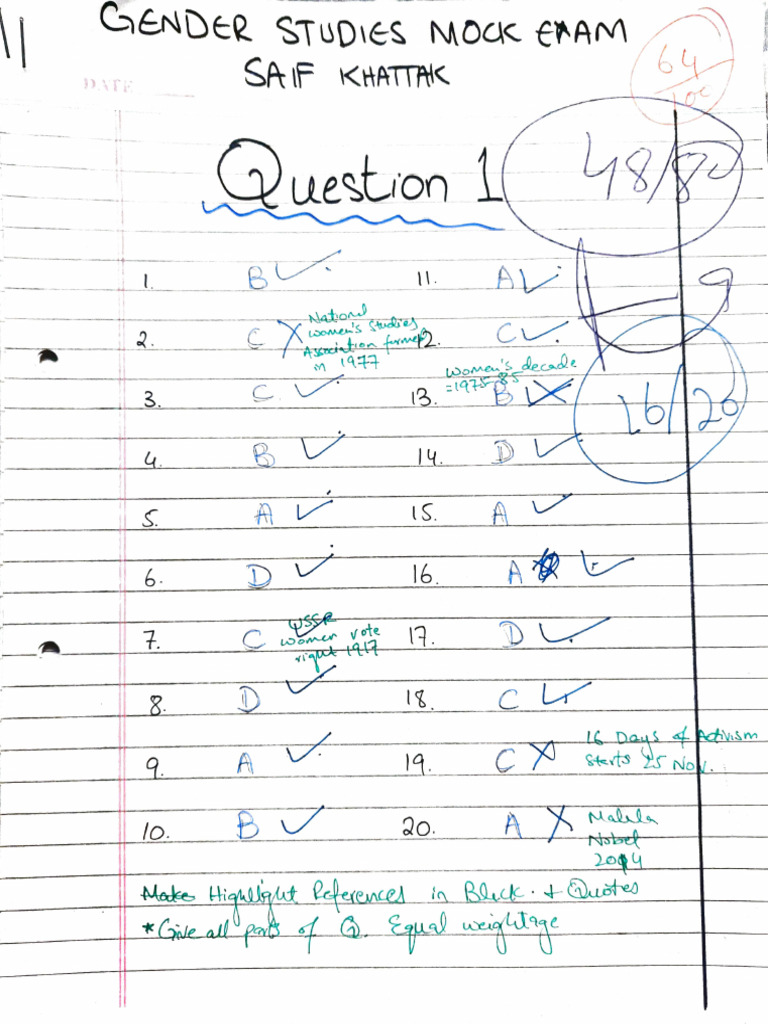 GENDER STUDIES MOCK EXAM
SAIF KHATTAK
64/100
DATE
48/80
Question 1
1. B 11. A
2. C National women's studies Association formed in 1977 12. C
16/20
3. C 13. women's decade = 1975-85 B
4. B 14. D
5. A 15. A
6. D 16. A
7. C USSR women vote right 1917 17. D
8. D 18. C
9. A 19. C 16 Days of Activism starts 25 Nov.
10. B 20. A Malala Nobel 2014
Make Highlight References in Black. + Quotes
*Give all parts of Q. Equal weightage